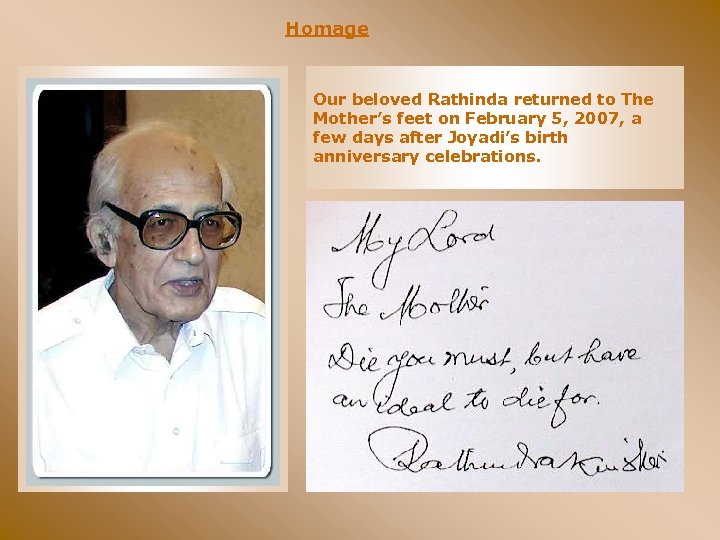 Homage
Our beloved Rathinda returned to The
Mother’s feet on February 5, 2007, a
few days after Joyadi’s birth
anniversary celebrations.
My Lord
The Mother
Die you must, but have
an ideal to die for.